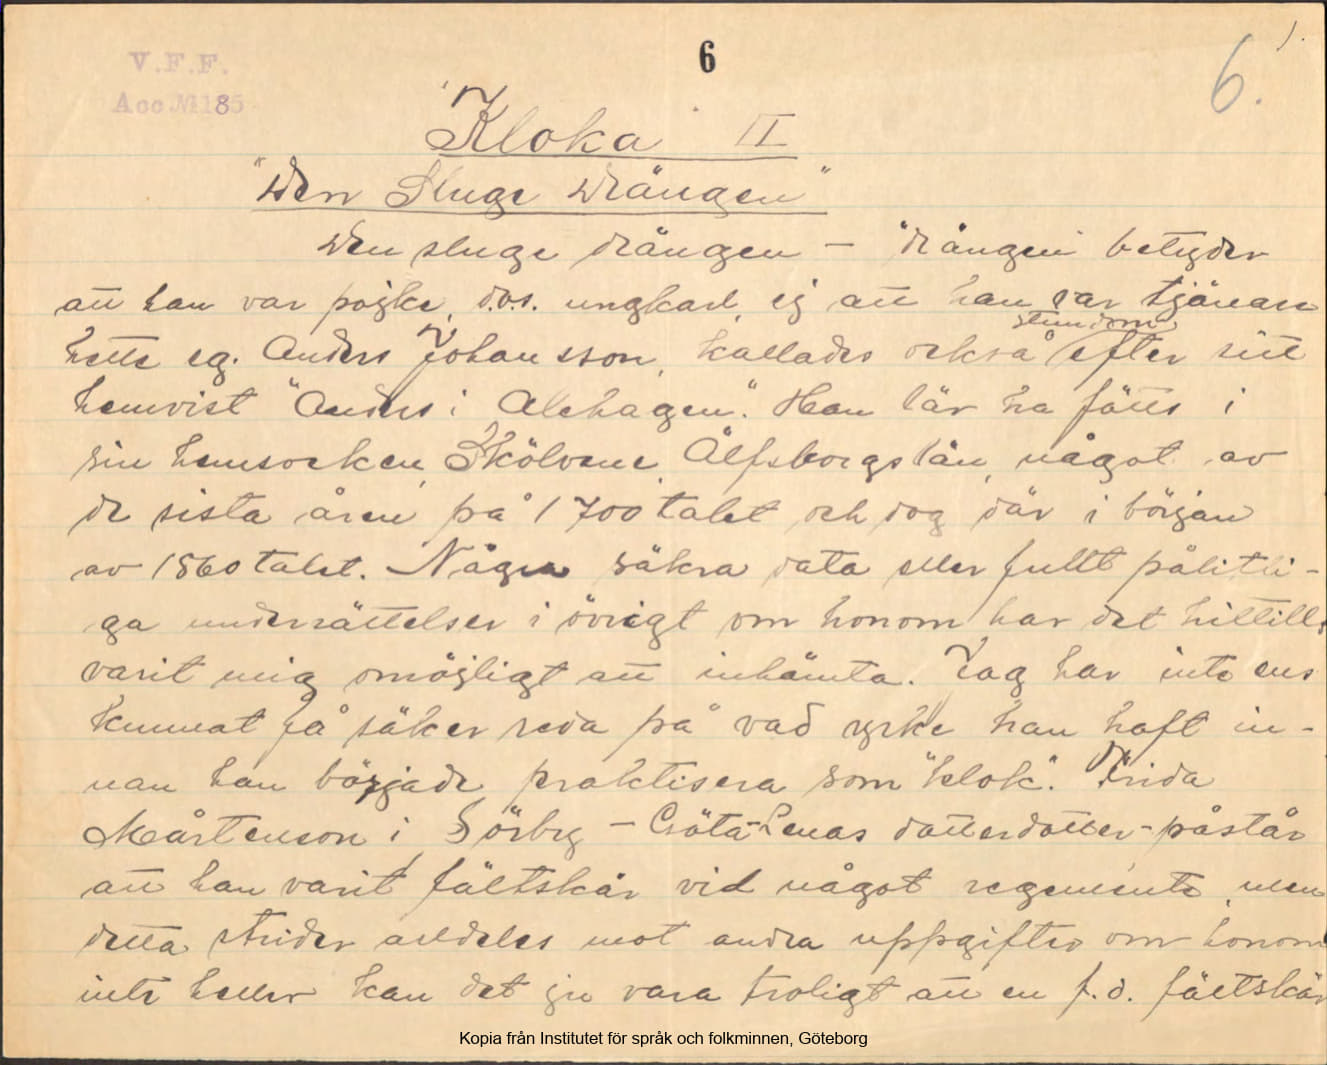 6
1.
6.
V.F.F.
Acc. № 185
Kloka II
"Den Sluge Drängen"
Den sluge drängen – "drängen" betyder
att han var pojke, d.v.s. ungkarl, ej att han var tjänare
hette eg. Anders Johansson, kallades också stundom efter sitt
hemvist "Anders i Alehagen". Han lär ha fötts i
sin hemsocken, Skölvene, Älfsborgs län, något av
de sista åren på 1700 talet och dog där i början
av 1860 talet. Några säkra data eller fullt pålitli-
ga underrättelser i övrigt om honom har det hittills
varit mig omöjligt att inhämta. Jag har inte ens
kunnat få säker reda på vad yrke han haft in-
nan han började praktisera som "klok". Frida
Mårtenson i Sörby – Göta-Lenas dotterdotter – påstår
att han varit fältskär vid något regemente, men
detta strider alldeles mot andra uppgifter om honom
inte heller kan det ju vara troligt att en f.d. fältskär
Kopia från Institutet för språk och folkminnen, Göteborg